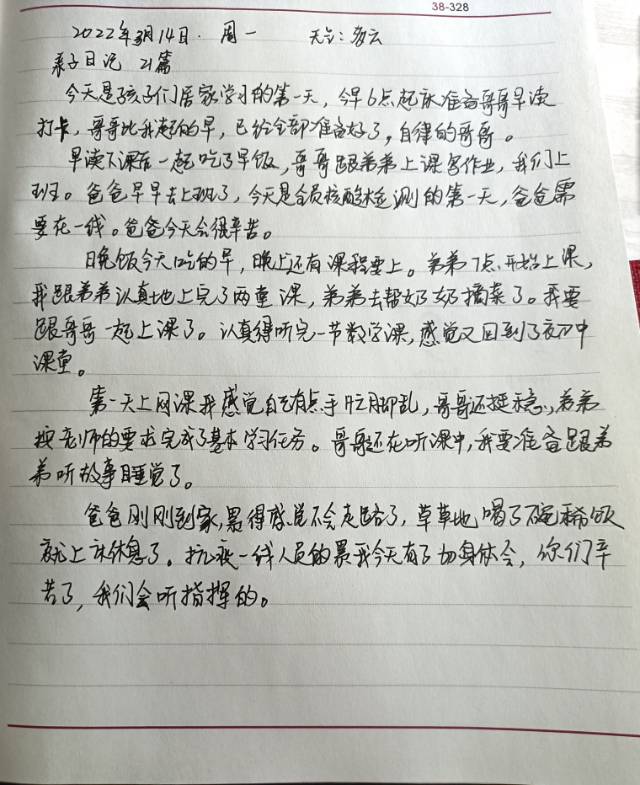 38-328
2022年3月14日. 周一 天气:多云
亲子日记 21篇
今天是孩子们居家学习的第一天,今早6点起床准备哥哥早读
打卡,哥哥比我起的早,已经全部准备好了,自律的哥哥。
早读下课后一起吃了早饭,哥哥跟弟弟上课写作业,我们上
班。爸爸早早去上班了,今天是全员核酸检测的第一天,爸爸需
要在一线。爸爸今天会很辛苦。
晚饭今天吃的早,晚上还有课程要上。弟弟7点开始上课,
我跟弟弟认真地上完了两童课,弟弟去帮奶奶摘菜了。我要
跟哥哥一起上课了。认真得听完一节数学课,感觉又回到了初中
课堂。
第一天上网课我感觉自己有点手忙脚乱,哥哥还挺稳,弟弟
按老师的要求完成了基本学习任务。哥哥还在听课中,我要准备跟弟
弟听故事睡觉了。
爸爸刚刚到家,累得感觉不会走路了,草草地喝了碗稀饭
就上床休息了。抗疫一线人员的累我今天有了切身体会,你们辛
苦了,我们会听指挥的。